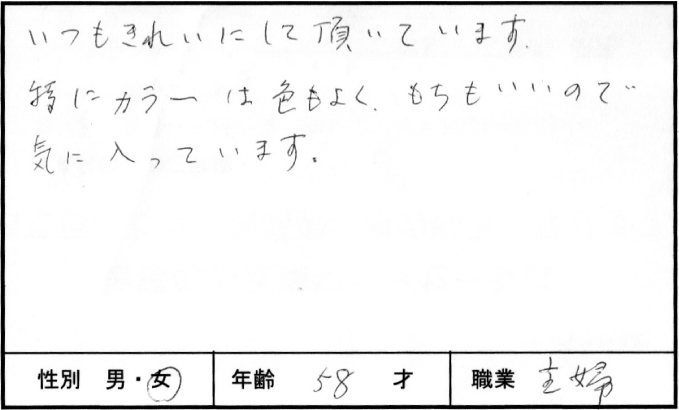 いつもきれいにして頂いています.
特にカラーは色もよく、もちもいいので
気に入っています。
性別 男・女 年齢 58 才 職業 主婦